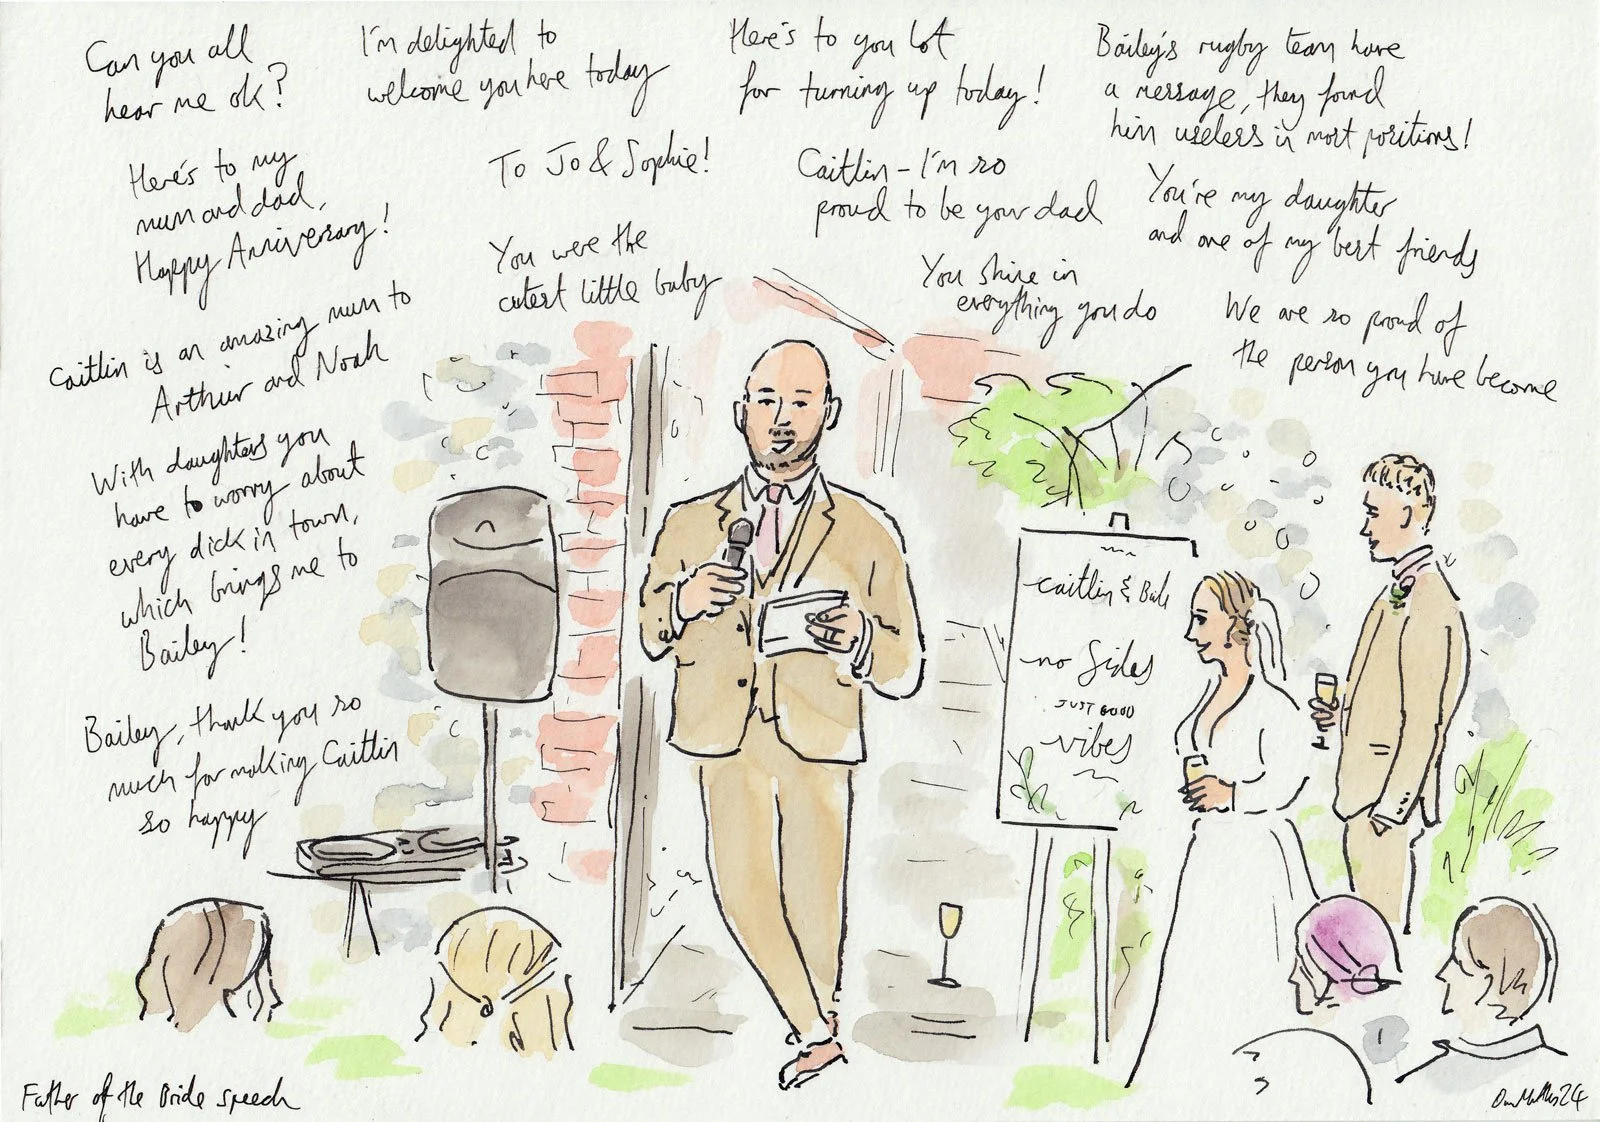 Can you all
hear me ok?
I'm delighted to
welcome you here today
Here's to you lot
for turning up today!
Bailey's rugby team have
a message, they found
him useless in most positions!
Here's to my
mum and dad,
Happy Anniversary!
To Jo & Sophie!
Caitlin - I'm so
proud to be your dad
You're my daughter
and one of my best friends
You were the
cutest little baby
You shine in
everything you do
We are so proud of
the person you have become
Caitlin is an amazing mum to
Arthur and Noah
With daughters you
have to worry about
every dick in town,
which brings me to
Bailey!
Bailey, thank you so
much for making Caitlin
so happy
caitlin & Bail
no sides
JUST GOOD
vibes
Father of the Bride speech
24